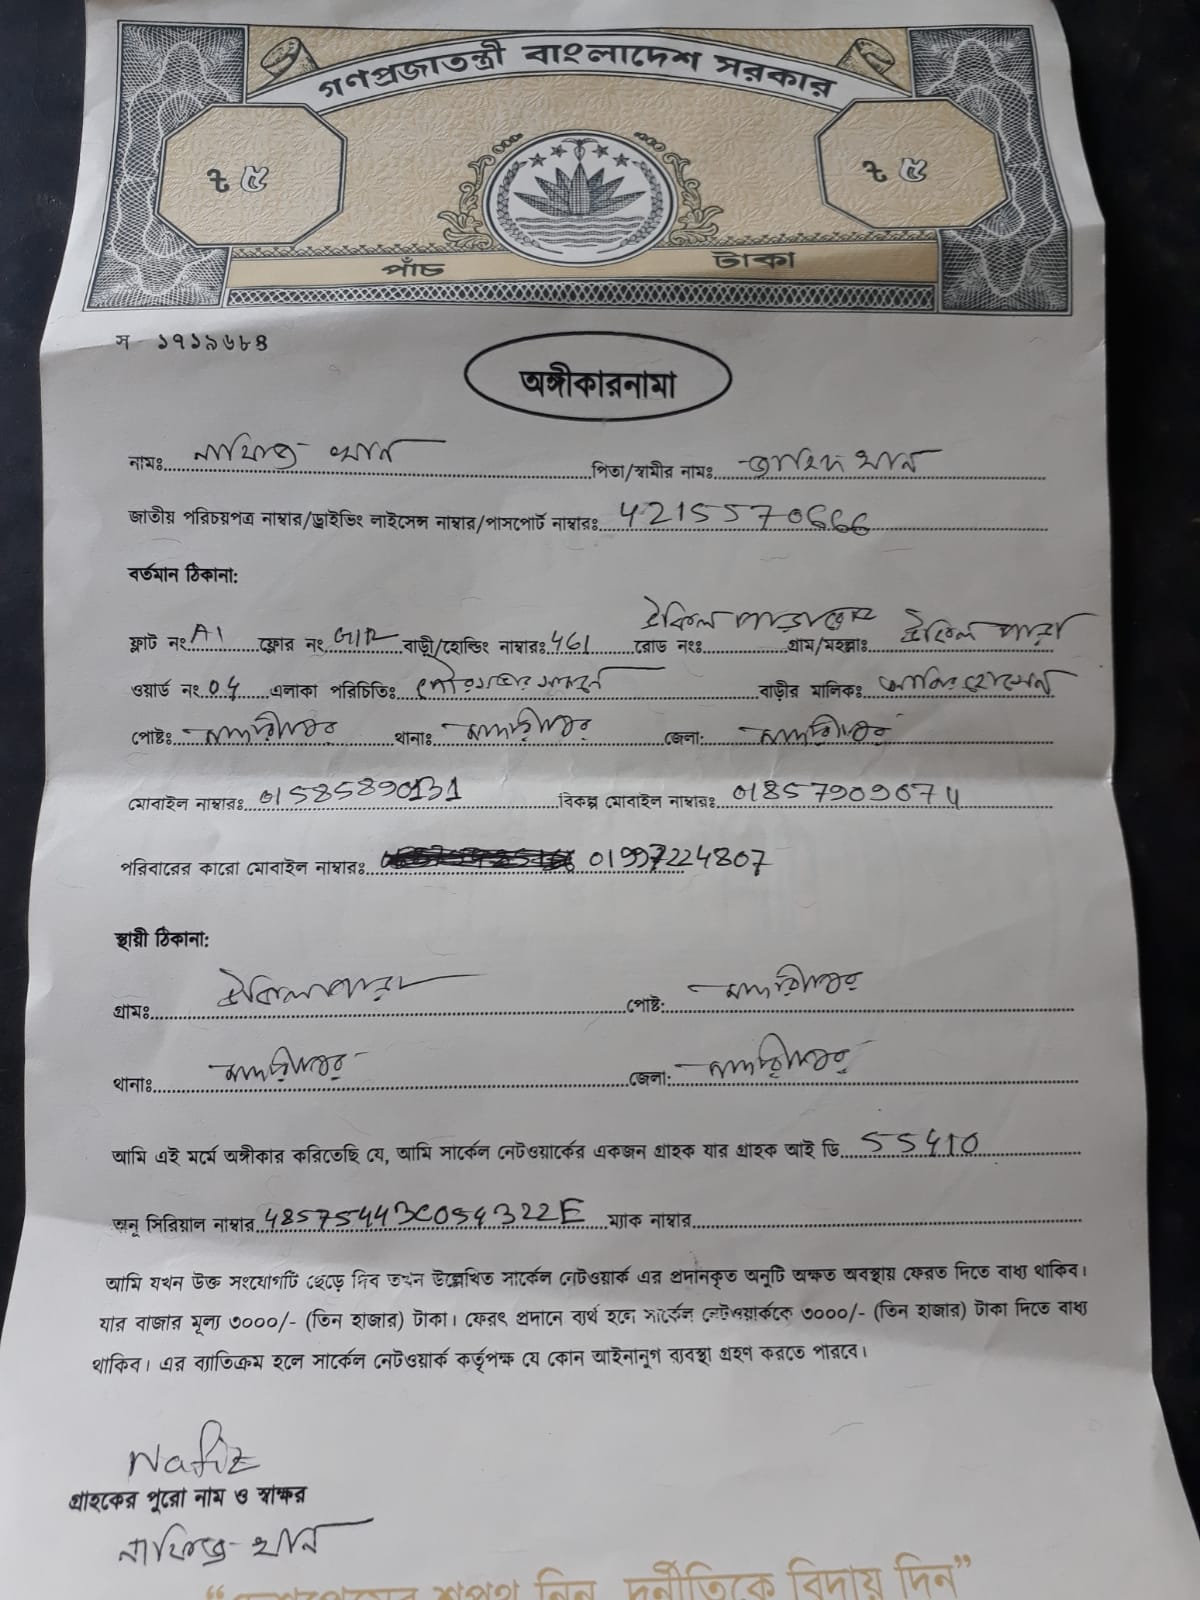 গণপ্রজাতন্ত্রী বাংলাদেশ সরকার
৳ ৫ ৳ ৫
পাঁচ টাকা
স ১৭১৯৬৮৪
অঙ্গীকারনামা
নামঃ নাফিজ খান পিতা/স্বামীর নামঃ খান
জাতীয় পরিচয়পত্র নাম্বার/ড্রাইভিং লাইসেন্স নাম্বার/পাসপোর্ট নাম্বারঃ 4215570666
বর্তমান ঠিকানা:
ফ্লাট নং A1 ফ্লোর নং বাড়ী/হোল্ডিং নাম্বারঃ 461 রোড নংঃ উকিল পাড়া গ্রাম/মহল্লাঃ উকিল পাড়া
ওয়ার্ড নং 04 এলাকা পরিচিতিঃ বাড়ীর মালিকঃ হোসেন
পোষ্টঃ মাদারীপুর থানাঃ মাদারীপুর জেলা: মাদারীপুর
মোবাইল নাম্বারঃ 01585890131 বিকল্প মোবাইল নাম্বারঃ
পরিবারের কারো মোবাইল নাম্বারঃ 01997224807
স্থায়ী ঠিকানা:
গ্রামঃ উকিলপাড়া পোষ্ট: মাদারীপুর
থানাঃ মাদারীপুর জেলা: মাদারীপুর
আমি এই মর্মে অঙ্গীকার করিতেছি যে, আমি সার্কেল নেটওয়ার্কের একজন গ্রাহক যার গ্রাহক আই ডি 55410
অনু সিরিয়াল নাম্বার 485754430054322E ম্যাক নাম্বার
আমি যখন উক্ত সংযোগটি ছেড়ে দিব তখন উল্লেখিত সার্কেল নেটওয়ার্ক এর প্রদানকৃত অনুটি অক্ষত অবস্থায় ফেরত দিতে বাধ্য থাকিব।
যার বাজার মূল্য ৩০০০/- (তিন হাজার) টাকা। ফেরৎ প্রদানে ব্যর্থ হলে সার্কেল নেটওয়ার্ককে ৩০০০/- (তিন হাজার) টাকা দিতে বাধ্য
থাকিব। এর ব্যাতিক্রম হলে সার্কেল নেটওয়ার্ক কর্তৃপক্ষ যে কোন আইনানুগ ব্যবস্থা গ্রহণ করতে পারবে।
Nafiz
গ্রাহকের পুরো নাম ও স্বাক্ষর
নাফিজ খান
শপথ নিন, দুর্নীতিকে বিদায় দিন”